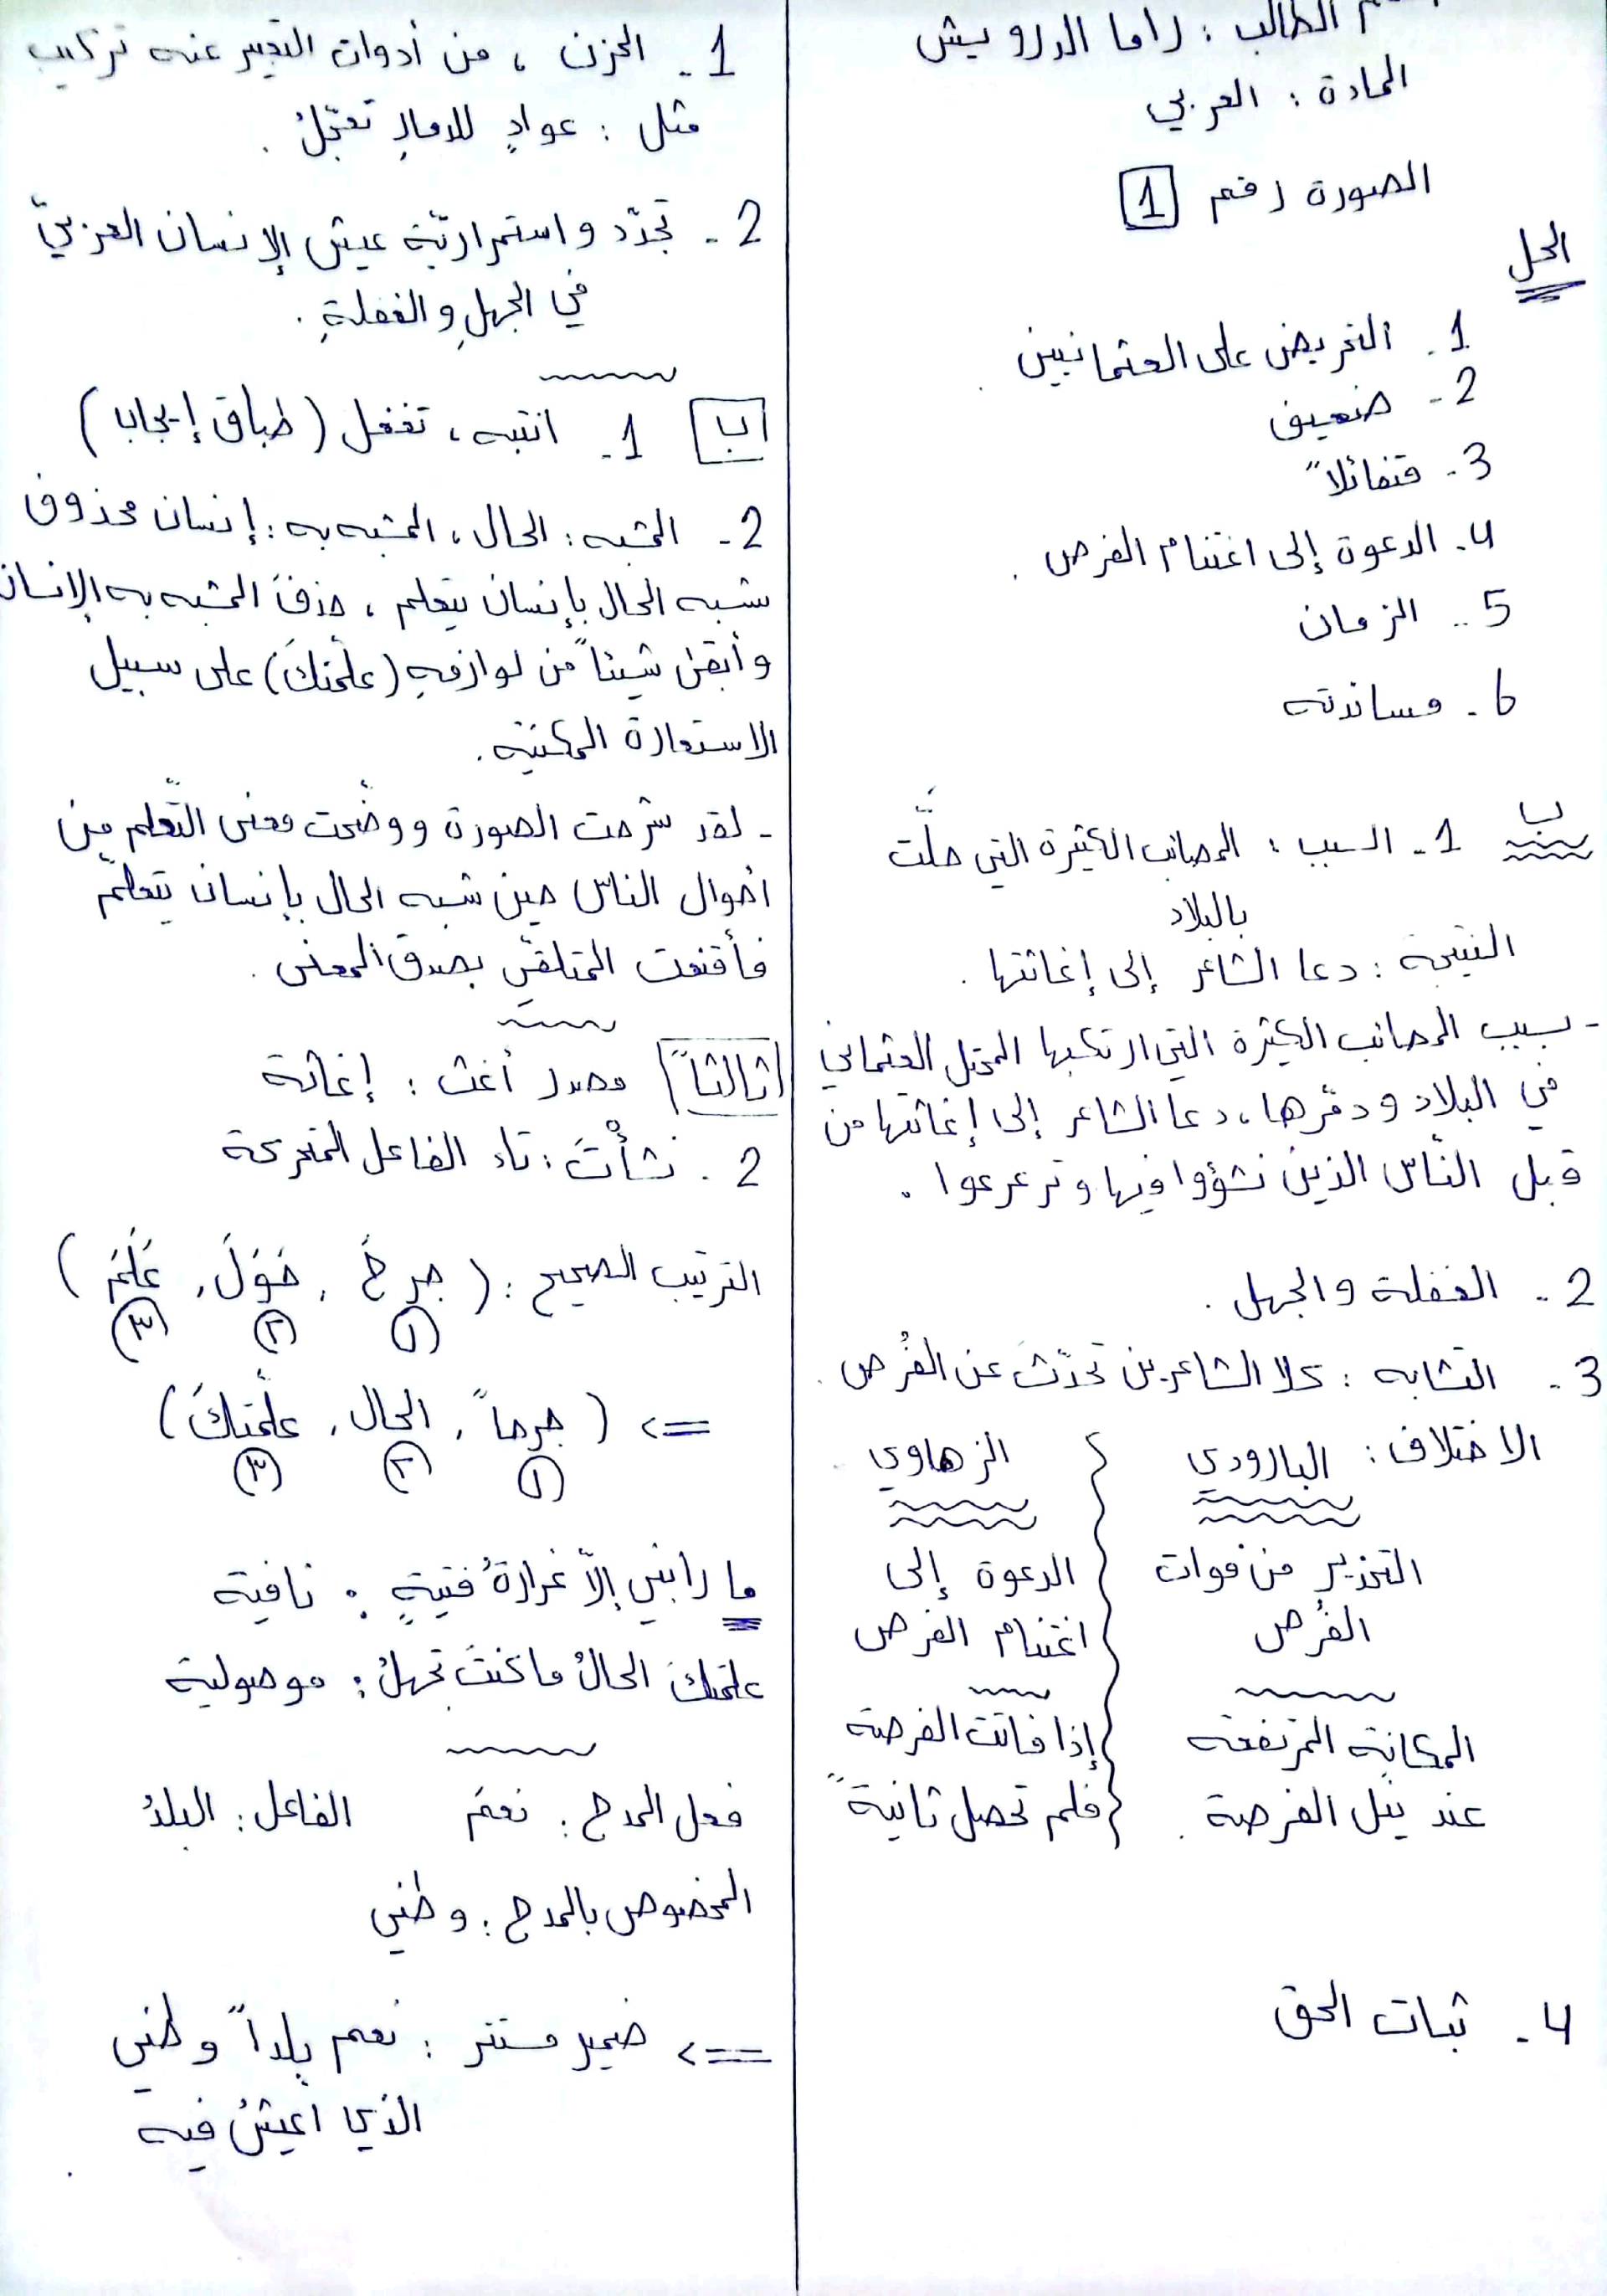 م الطالب : راما الدرويش
المادة : العربي
الصورة رقم 1
الحل
1. التحريض على العثمانيين .
2- ضعيف
3- متفائلاً
4. الدعوة إلى اغتنام الفرص .
5.. الزمان
6. مساندته
ب 1- السبب : المصائب الكثيرة التي حلَّت
بالبلاد
النتيجة : دعا الشاعر إلى إغاثتها .
- بسبب المصائب الكثيرة التي ارتكبها المحتل العثماني
في البلاد ودمّرها ، دعا الشاعر إلى إغاثتها من
قبل النّاس الذين نشؤوا فيها وترعرعوا .
2- الغفلة والجهل .
3- التشابه : كلا الشاعرين تحدّث عن الفُرص .
الاختلاف : البارودي الزهاوي
التحذير من فوات الدعوة إلى
الفُرص اغتنام الفرص
المكانة المرتفعة إذا فاتت الفرصة
عند نيل الفرصة . فلم تحصل ثانيةً
4- ثبات الحق
1- الحزن ، من أدوات التعبير عنه تركيب
مثل : عوادٍ للدمارِ تعجّلُ .
2- تجدّد واستمراريّة عيش الإنسان العربيّ
في الجهلِ والغفلةِ .
ب 1- انتبه ، تغفل ( طباق إيجاب )
2- المشبه : الحال ، المشبه به : إنسان محذوف
شبه الحال بإنسان يتعلم ، حذفَ المشبه به الإنسان
وأبقى شيئاً من لوازمهِ ( علّمتكَ ) على سبيل
الاستعارة المكنية .
- لقد شرحت الصورة ووضّحت معنى التّعلم من
أحوال الناس حين شبه الحال بإنسان يتعلّم
فأقنعت المتلقّي بصدق المعنى .
ثالثاً مصدر أغث : إغاثة
2. نشأْتَ : تاء الفاعل المتحركة
الترتيب الصحيح : ( جرحَ ، حَوَلَ ، عَلَمَ )
١ ٢ ٣
=> ( جرحاً ، الحال ، علّمتكَ )
١ ٢ ٣
ما رابني إلّا غرارةُ فتيةٍ : نافية
علّمتكَ الحالُ ما كنتَ تجهلُ : موصولية
فعل المدح : نعمَ الفاعل : البلدُ
المخصوص بالمدح : وطني
==> ضمير مستتر : نعم بلداً وطني
الذي أعيشُ فيه .